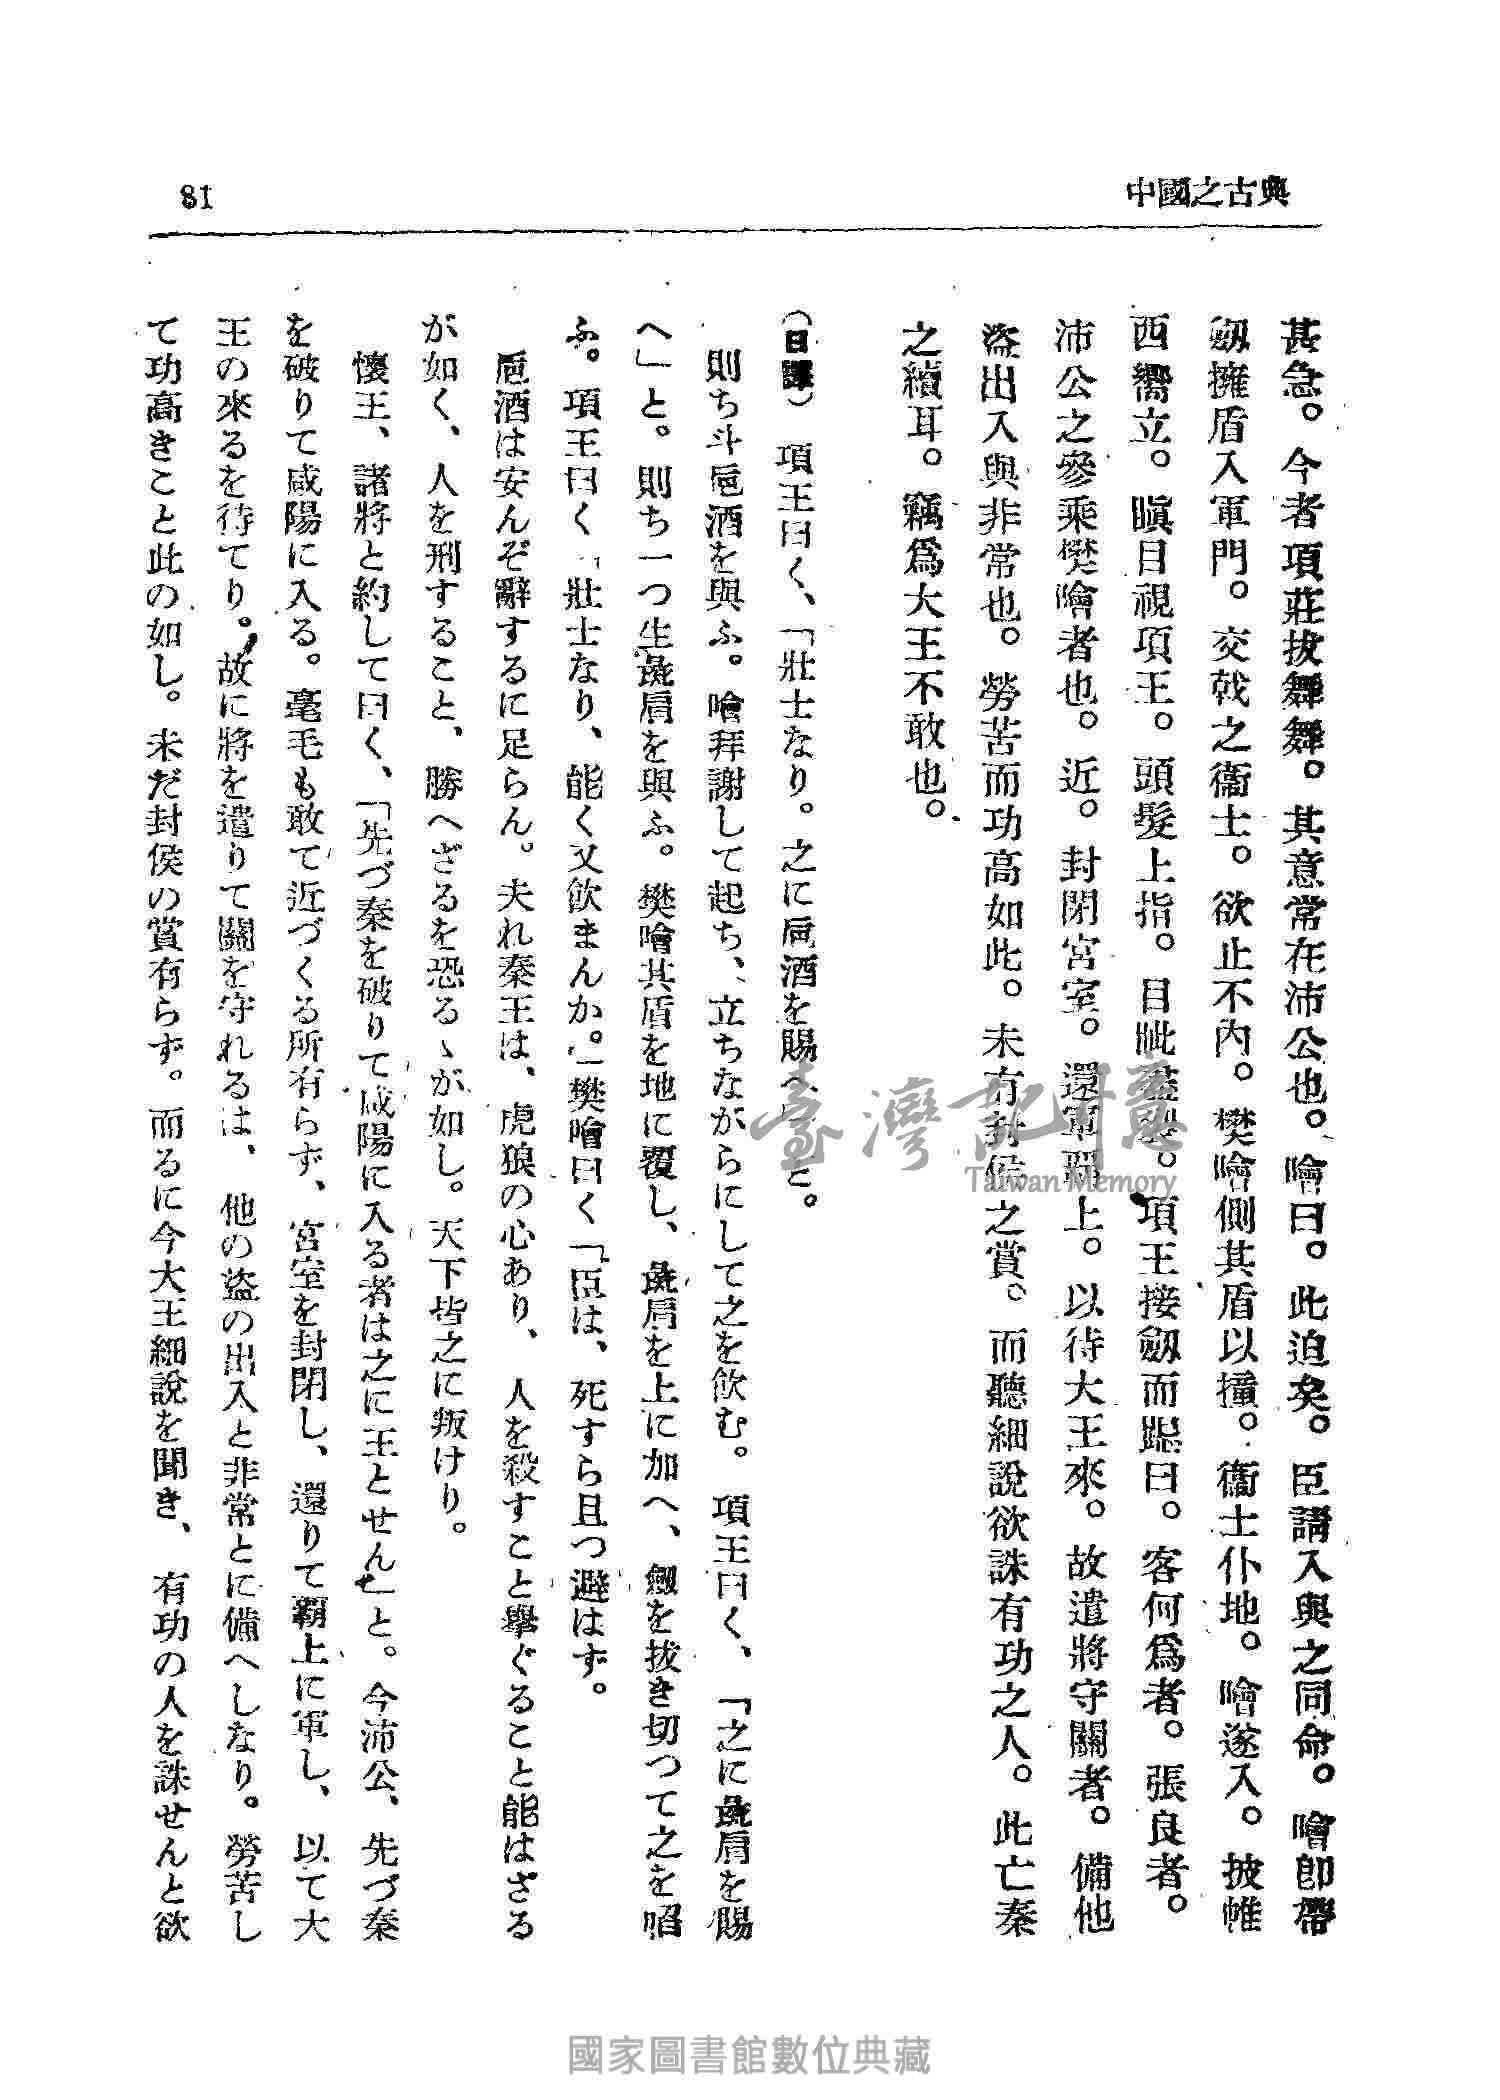 中國之古典
81
甚急。今者項莊拔舞舞。其意常在沛公也。噲曰。此迫矣。臣請入與之同命。噲卽帶
劔擁盾入軍門。交戟之衞士。欲止不內。樊噲側其盾以撞。衞士仆地。噲遂入。披帷
西嚮立。瞋目視項王。頭髮上指。目眦盡裂。項王接劔而跽曰。客何爲者。張良者。
沛公之參乘樊噲者也。近。封閉宮室。還軍霸上。以待大王來。故遣將守關者。備他
盜出入與非常也。勞苦而功高如此。未有封侯之賞。而聽細說欲誅有功之人。此亡秦
之續耳。竊爲大王不敢也。
（日譯）項王曰く、「壯士なり。之に卮酒を賜へ」と。
則ち斗卮酒を與ふ。噲拜謝して起ち、立ちながらにして之を飮む。項王曰く、「之に彘肩を賜
へ」と。則ち一つ生彘肩を與ふ。樊噲其盾を地に覆し、彘肩を上に加へ、劔を拔き切つて之を啗
ふ。項王曰く「壯士なり、能く又飮まんか。」樊噲曰く「臣は、死すら且つ避はず。
卮酒は安んぞ辭するに足らん。夫れ秦王は、虎狼の心あり、人を殺すこと擧ぐること能はざる
が如く、人を刑すること、勝へざるを恐るゝが如し。天下皆之に叛けり。
懷王、諸將と約して曰く、「先づ秦を破りて咸陽に入る者は之に王とせん」と。今沛公、先づ秦
を破りて咸陽に入る。毫毛も敢て近づくる所有らず、宮室を封閉し、還りて霸上に軍し、以て大
王の來るを待てり。故に將を遣りて關を守れるは、他の盜の出入と非常とに備へしなり。勞苦し
て功高きこと此の如し。未だ封侯の賞有らず。而るに今大王細說を聞き、有功の人を誅せんと欲
臺灣記憶
Taiwan Memory
國家圖書館數位典藏